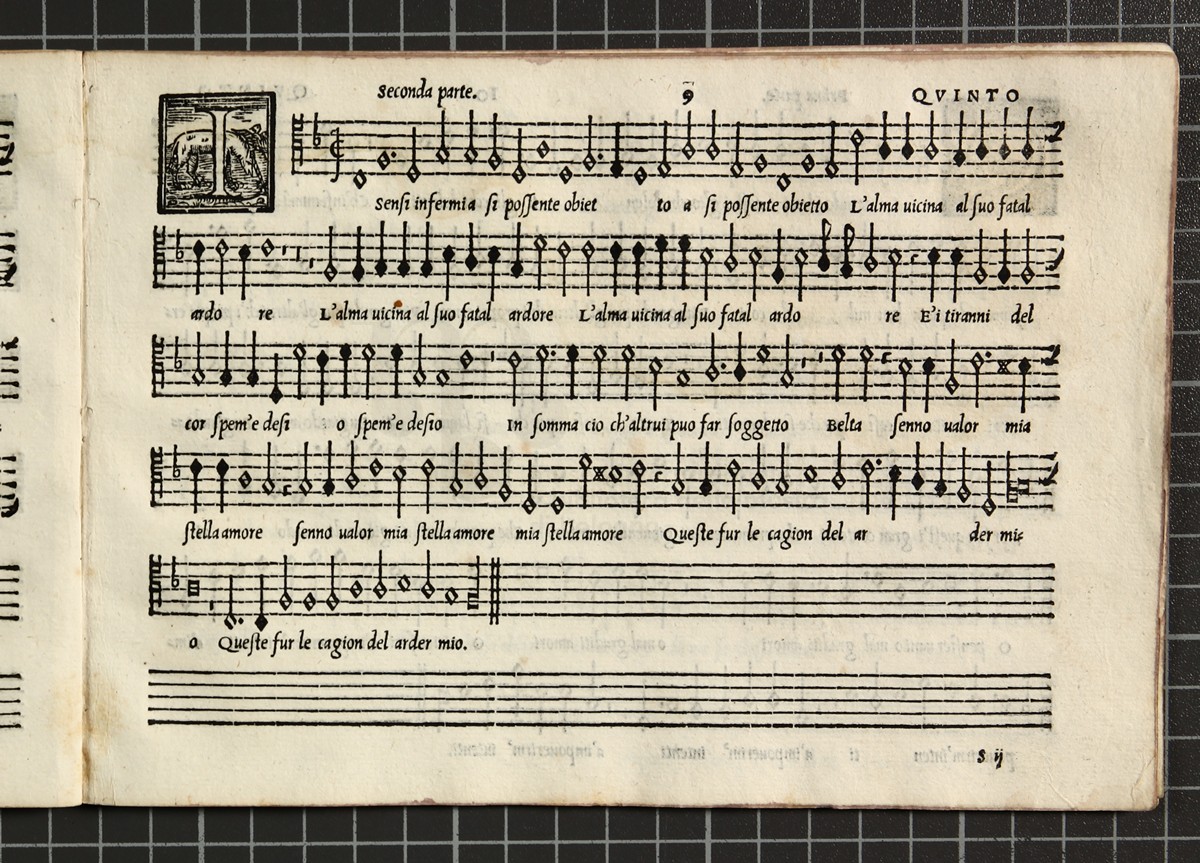 Seconda parte. 9 QVINTO
I Sensi infermi a si possente obiet to a si possente obietto L'alma uicina al suo fatal
ardo re L'alma uicina al suo fatal ardore L'alma uicina al suo fatal ardo re E'i tiranni del
cor spem'e desi o spem'e desio In somma cio ch'altrui puo far soggetto Belta senno ualor mia
stella amore senno ualor mia stella amore mia stella amore Queste fur le cagion del ar der mi
o Queste fur le cagion del arder mio.
S ij